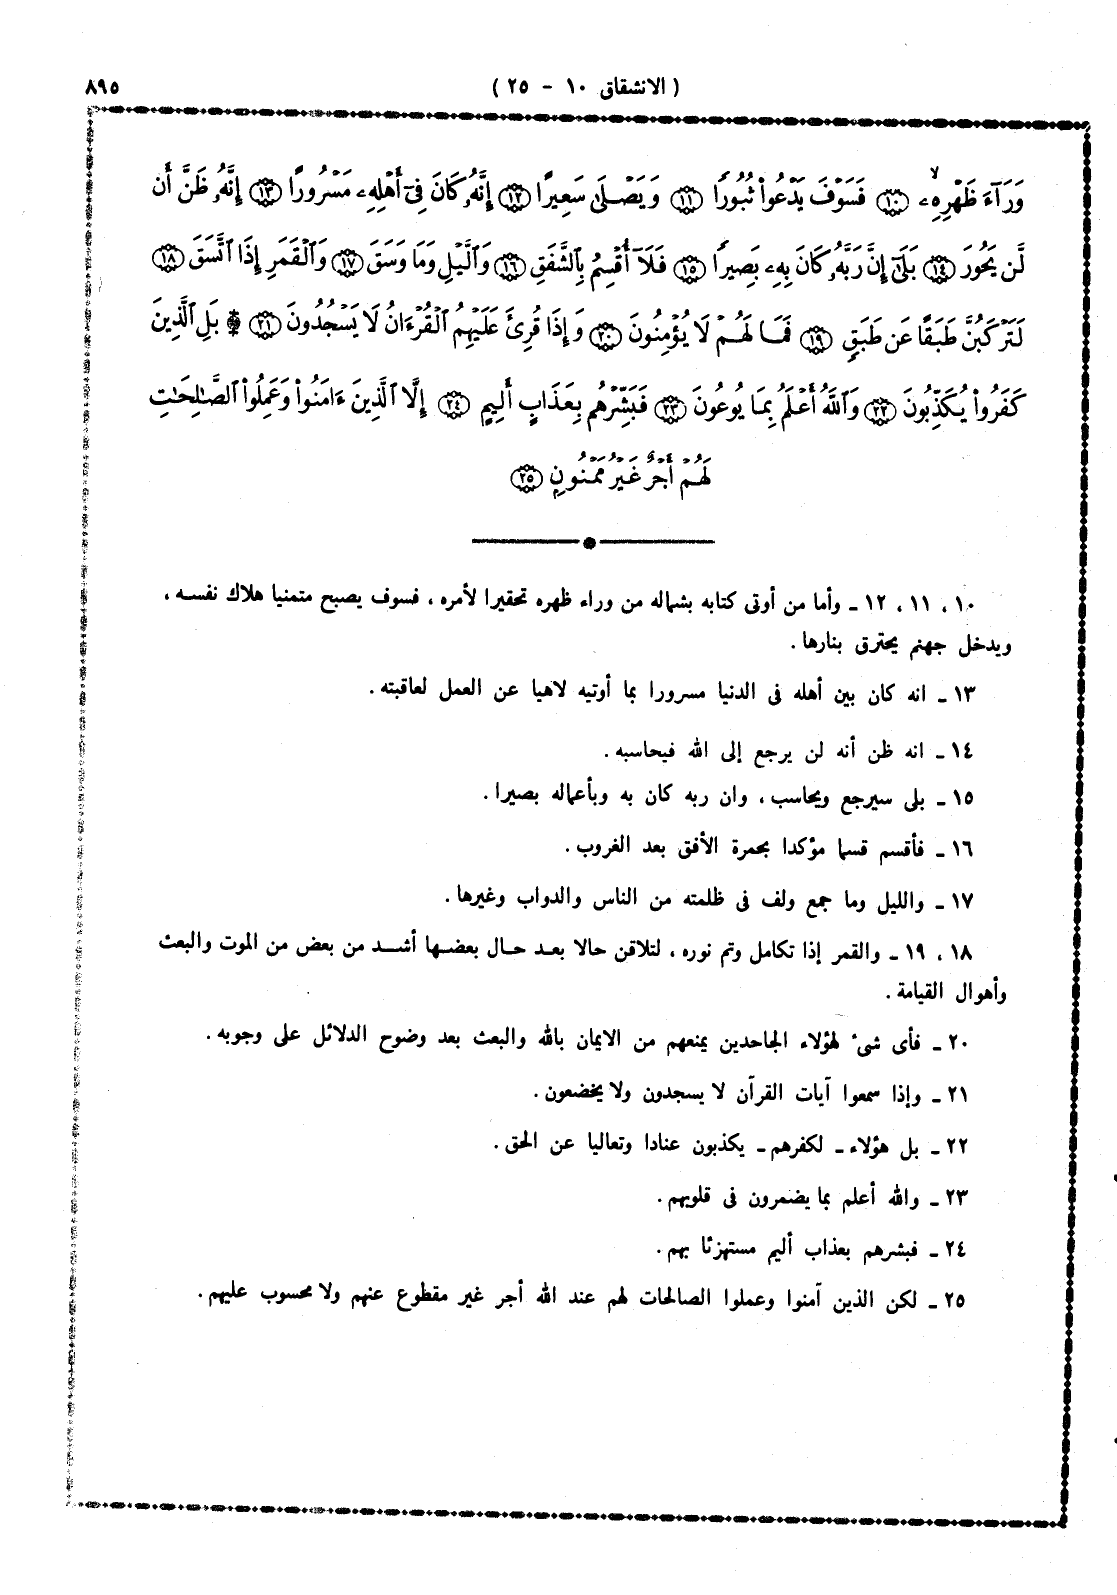 ( الانشقاق ١٠ - ٢٥ )
٨٩٥
وَرَآءَ ظَهْرِهِۦ ١٠ فَسَوْفَ يَدْعُوا۟ ثُبُورًا ١١ وَيَصْلَىٰ سَعِيرًا ١٢ إِنَّهُۥ كَانَ فِىٓ أَهْلِهِۦ مَسْرُورًا ١٣ إِنَّهُۥ ظَنَّ أَن
لَّن يَحُورَ ١٤ بَلَىٰٓ إِنَّ رَبَّهُۥ كَانَ بِهِۦ بَصِيرًا ١٥ فَلَآ أُقْسِمُ بِٱلشَّفَقِ ١٦ وَٱلَّيْلِ وَمَا وَسَقَ ١٧ وَٱلْقَمَرِ إِذَا ٱتَّسَقَ ١٨
لَتَرْكَبُنَّ طَبَقًا عَن طَبَقٍ ١٩ فَمَا لَهُمْ لَا يُؤْمِنُونَ ٢٠ وَإِذَا قُرِئَ عَلَيْهِمُ ٱلْقُرْءَانُ لَا يَسْجُدُونَ ٢١ ۞ بَلِ ٱلَّذِينَ
كَفَرُوا۟ يُكَذِّبُونَ ٢٢ وَٱللَّهُ أَعْلَمُ بِمَا يُوعُونَ ٢٣ فَبَشِّرْهُم بِعَذَابٍ أَلِيمٍ ٢٤ إِلَّا ٱلَّذِينَ ءَامَنُوا۟ وَعَمِلُوا۟ ٱلصَّٰلِحَٰتِ
لَهُمْ أَجْرٌ غَيْرُ مَمْنُونٍ ٢٥
١٠ ، ١١ ، ١٢ - وأما من أوتى كتابه بشماله من وراء ظهره تحقيرا لأمره ، فسوف يصبح متمنيا هلاك نفسه ،
ويدخل جهنم يحترق بنارها .
١٣ - انه كان بين أهله فى الدنيا مسرورا بما أوتيه لاهيا عن العمل لعاقبته .
١٤ - انه ظن أنه لن يرجع إلى الله فيحاسبه .
١٥ - بلى سيرجع ويحاسب ، وان ربه كان به وبأعماله بصيرا .
١٦ - فأقسم قسما مؤكدا بحمرة الأفق بعد الغروب .
١٧ - والليل وما جمع ولف فى ظلمته من الناس والدواب وغيرها .
١٨ ، ١٩ - والقمر إذا تكامل وتم نوره ، لتلاقن حالا بعد حال بعضها أشد من بعض من الموت والبعث
وأهوال القيامة .
٢٠ - فأى شىء لهؤلاء الجاحدين يمنعهم من الايمان بالله والبعث بعد وضوح الدلائل على وجوبه .
٢١ - وإذا سمعوا آيات القرآن لا يسجدون ولا يخضعون .
٢٢ - بل هؤلاء - لكفرهم - يكذبون عنادا وتعاليا عن الحق .
٢٣ - والله أعلم بما يضمرون فى قلوبهم .
٢٤ - فبشرهم بعذاب أليم مستهزئا بهم .
٢٥ - لكن الذين آمنوا وعملوا الصالحات لهم عند الله أجر غير مقطوع عنهم ولا محسوب عليهم .